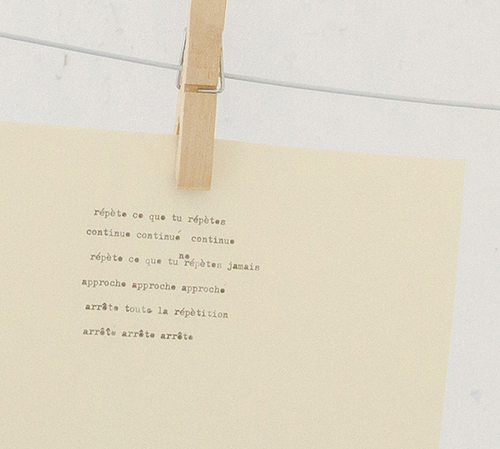 répète ce que tu répètes
continue continué continue
répète ce que tu ne répètes jamais
approche approche approche
arrête toute la répètition
arrête arrête arrête